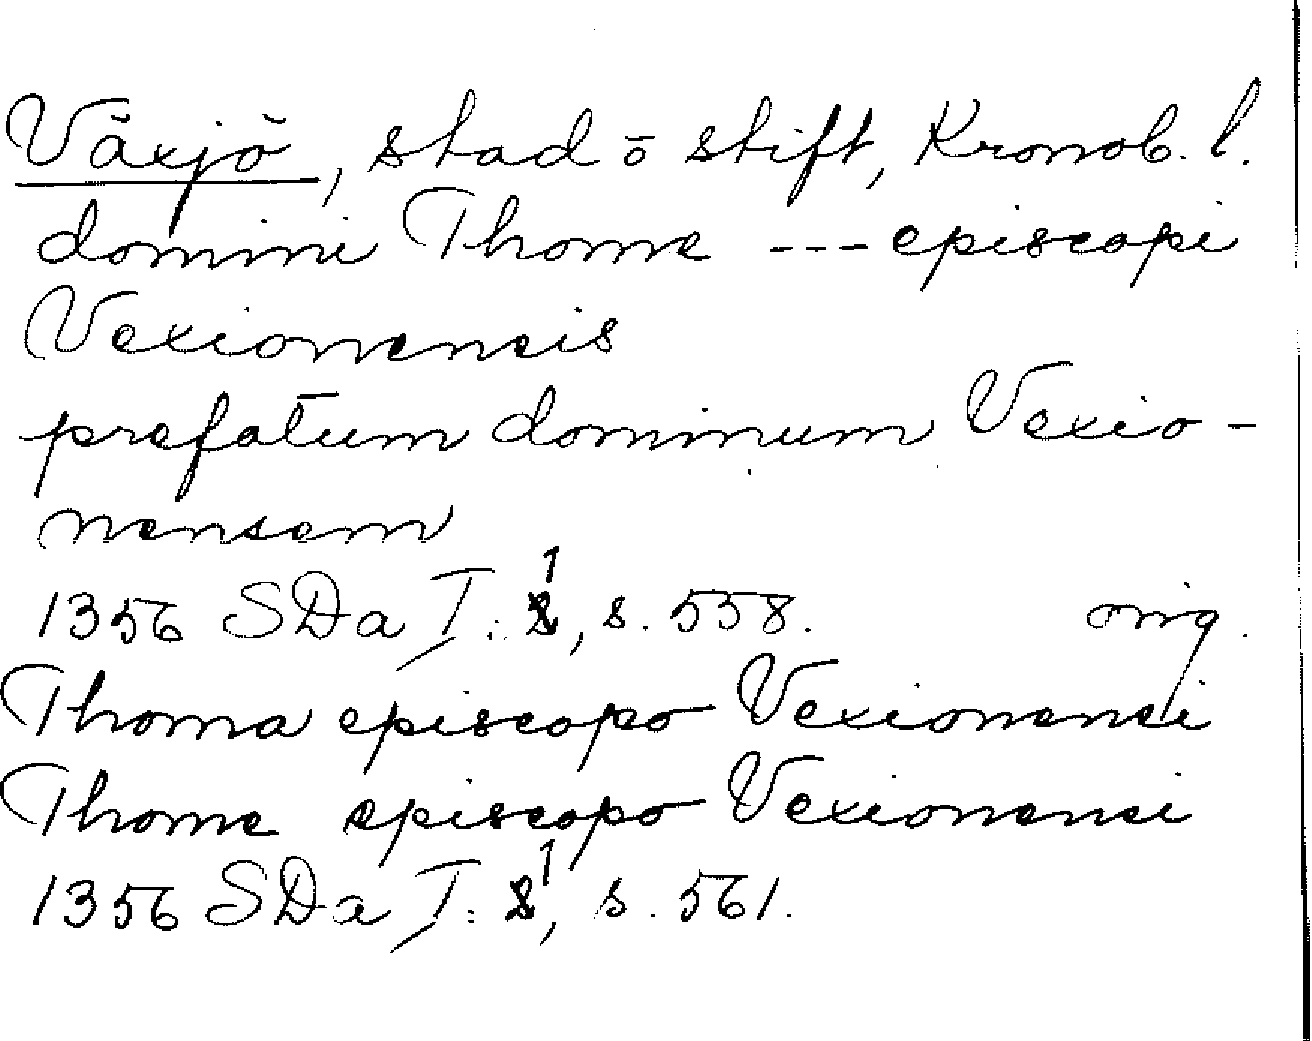 Växjö, stad ō stift, Kronob. l.
domini Thome --- episcopi
Vexionensis
prefatum dominum Vexio-
nensem
1356 SDa I: 1, s. 558. orig.
Thoma episcopo Vexionensi
Thome episcopo Vexionensi
1356 SDa I: 1, s. 561.